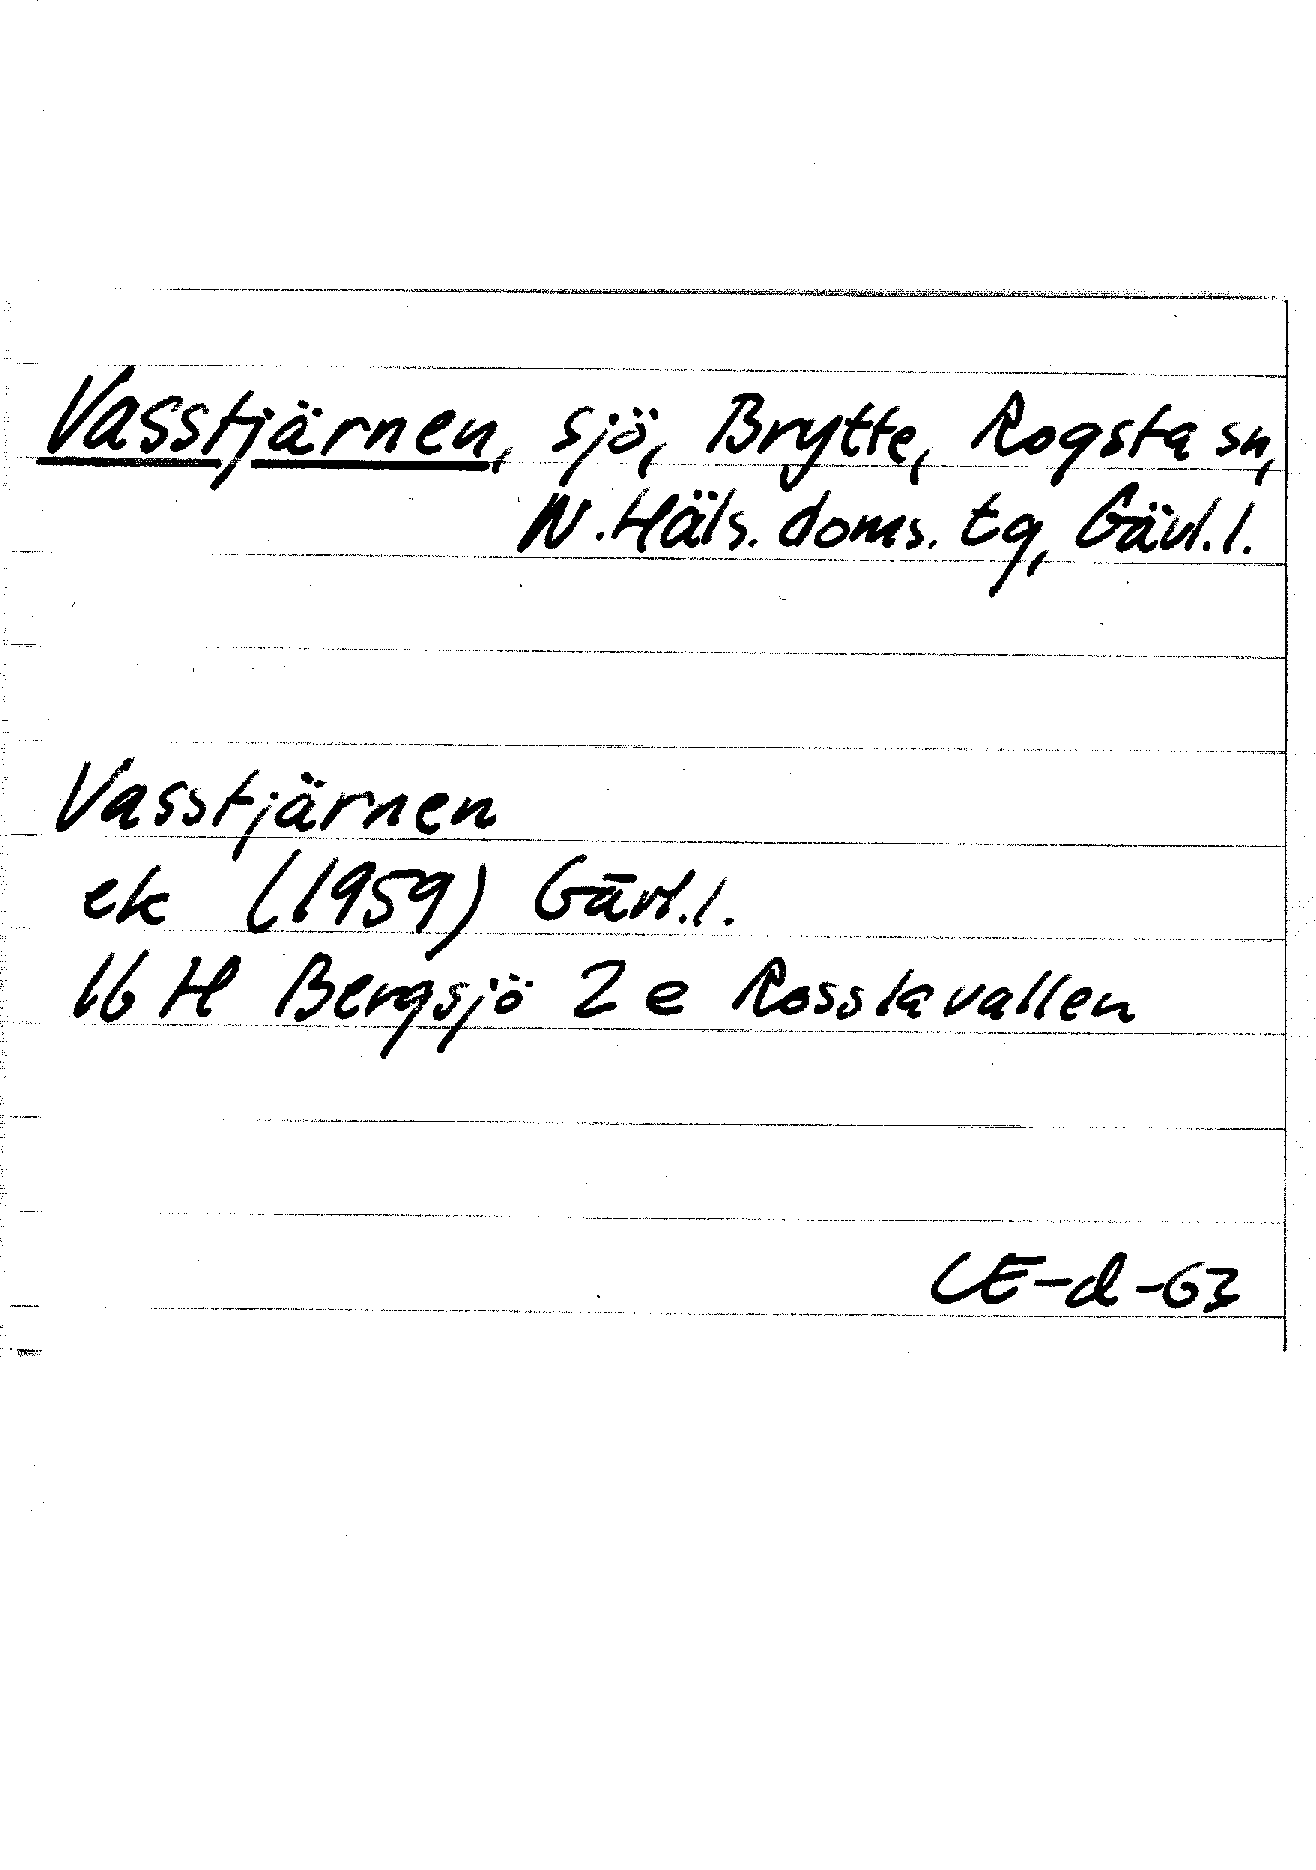 Vasstjärnen, sjö, Brytte, Rogsta sn,
N. Häls. doms. tg, Gävl. l.
Vasstjärnen
ek (1959) Gävl. l.
16 H Bergsjö 2 e Rosstavallen
CE-d-63